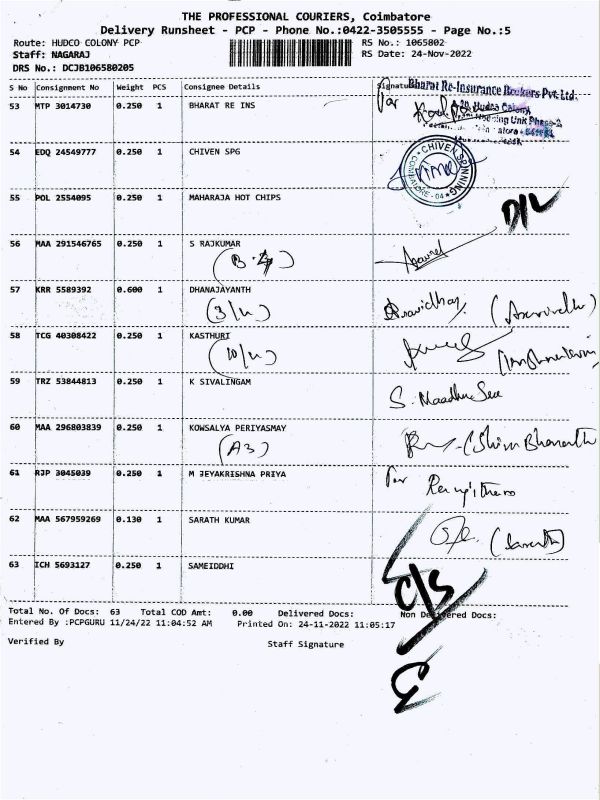 THE PROFESSIONAL COURIERS, Coimbatore
Delivery Runsheet - PCP - Phone No.:0422-3505555 - Page No.:5
Route: HUDCO COLONY PCP RS No.: 1065802
Staff: NAGARAJ RS Date: 24-Nov-2022
DRS No.: DCJB106580205
S No Consignment No Weight PCS Consignee Details Signature
Bharat Re-Insurance Brokers Pvt. Ltd.
53 MTP 3014730 0.250 1 BHARAT RE INS For
54 EDQ 24549777 0.250 1 CHIVEN SPG
CHIVEN SPINNING
COIMBATORE - 04
55 POL 2554095 0.250 1 MAHARAJA HOT CHIPS D/L
56 MAA 291546765 0.250 1 S RAJKUMAR
57 KRR 5589392 0.600 1 DHANAJAYANTH
(3/11)
58 TCG 40308422 0.250 1 KASTHURI
(10/11)
59 TRZ 53844813 0.250 1 K SIVALINGAM
60 MAA 296803839 0.250 1 KOWSALYA PERIYASMAY
(A3)
61 RJP 3045039 0.250 1 M JEYAKRISHNA PRIYA For
62 MAA 567959269 0.130 1 SARATH KUMAR
63 ICH 5693127 0.250 1 SAMEIDDHI
Total No. Of Docs: 63 Total COD Amt: 0.00 Delivered Docs: Non Delivered Docs:
Entered By :PCPGURU 11/24/22 11:04:52 AM Printed On: 24-11-2022 11:05:17
Verified By Staff Signature